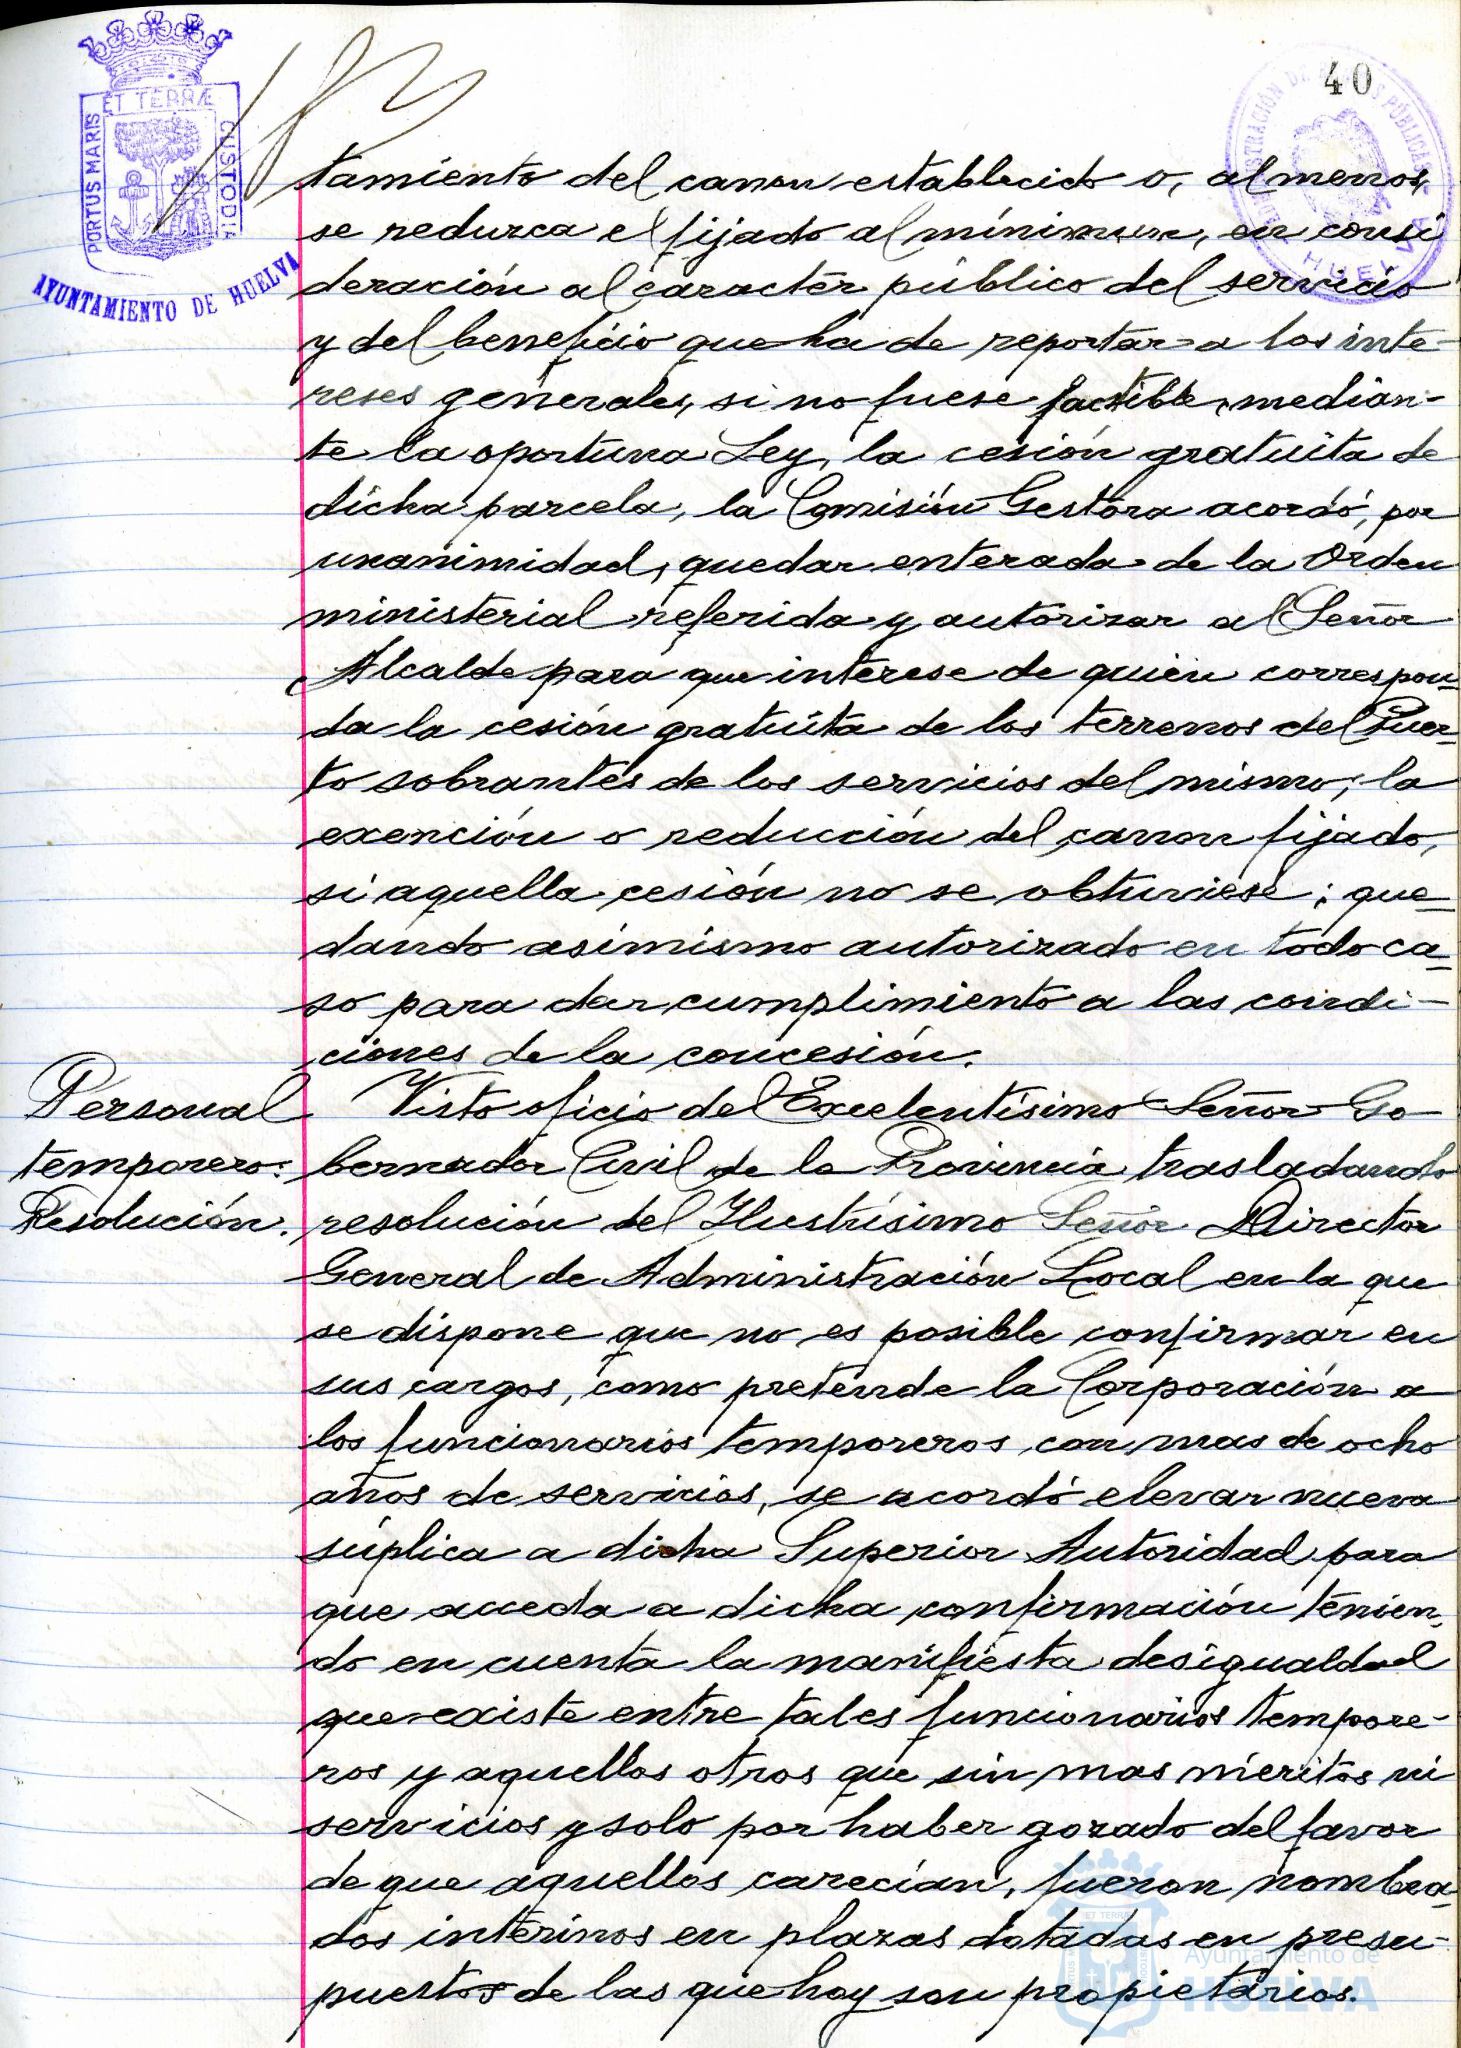 40
ET TERRÆ
PORTUS MARIS
CUSTODIA
AYUNTAMIENTO DE HUELVA
HUELVA
tamiento del canon establecido o, al menos,
se reduzca el fijado al mínimum, en consi
deración al carácter público del servicio
y del beneficio que ha de reportar a los inte-
reses generales, si no fuese factible, median-
te la oportuna Ley, la cesión gratuita de
dicha parcela, la Comisión Gestora acordó, por
unanimidad, quedar enterada de la Orden
ministerial referida y autorizar al Señor
Alcalde para que interese de quien correspon-
da la cesión gratuita de los terrenos del Puer-
to sobrantes de los servicios del mismo; la
exención o reducción del canon fijado,
si aquella cesión no se obtuviese; que-
dando asimismo autorizado en todo ca-
so para dar cumplimiento a las condi-
ciones de la concesión.
Personal
temporero.
Resolución.
Visto oficio del Excelentísimo Señor Go
bernador Civil de la Provincia trasladando
resolución del Ilustrísimo Señor Director
General de Administración Local en la que
se dispone que no es posible confirmar en
sus cargos, como pretende la Corporación a
los funcionarios temporeros con mas de ocho
años de servicios, se acordó elevar nueva
súplica a dicha Superior Autoridad para
que acceda a dicha confirmación tenien-
do en cuenta la manifiesta desigualdad
que existe entre tales funcionarios tempore-
ros y aquellos otros que sin mas méritos ni
servicios y solo por haber gozado del favor
de que aquellos carecían, fueron nombra-
dos interinos en plazas dotadas en presu-
puestos de las que hoy son propietarios.
Ayuntamiento de
HUELVA